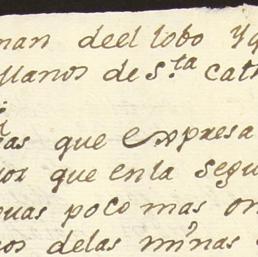 nan deel lobo Y q
llanos de S.ta Cat
as que expresa
or que enla segu
guas poco mas on
os delas minas